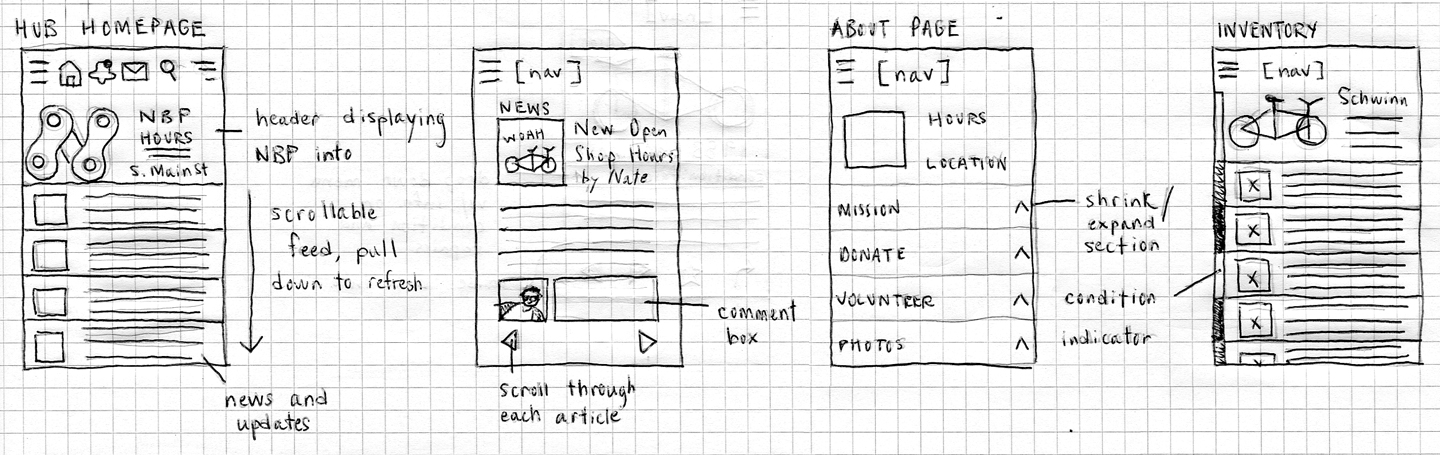 HUB HOMEPAGE
NBP
HOURS
S. Main St
header displaying
NBP into
scrollable
feed, pull
down to refresh
news and
updates
[nav]
NEWS
WOAH
New Open
Shop Hours
by Nate
comment
box
scroll through
each article
ABOUT PAGE
[nav]
HOURS
LOCATION
MISSION
DONATE
VOLUNTEER
PHOTOS
shrink/
expand
section
INVENTORY
[nav]
Schwinn
x
x
x
x
condition
indicator